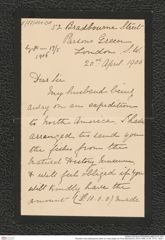 52 Bradbourne Street
Parsons Green
London S.W.
20th April 1900
Dear Sir
My husband being
away on an expedition
to North America I have
arranged to send you
the fishes from the
Natural History Museum
& will feel obliged if you
will kindly have the
amount (£11.0.0) made